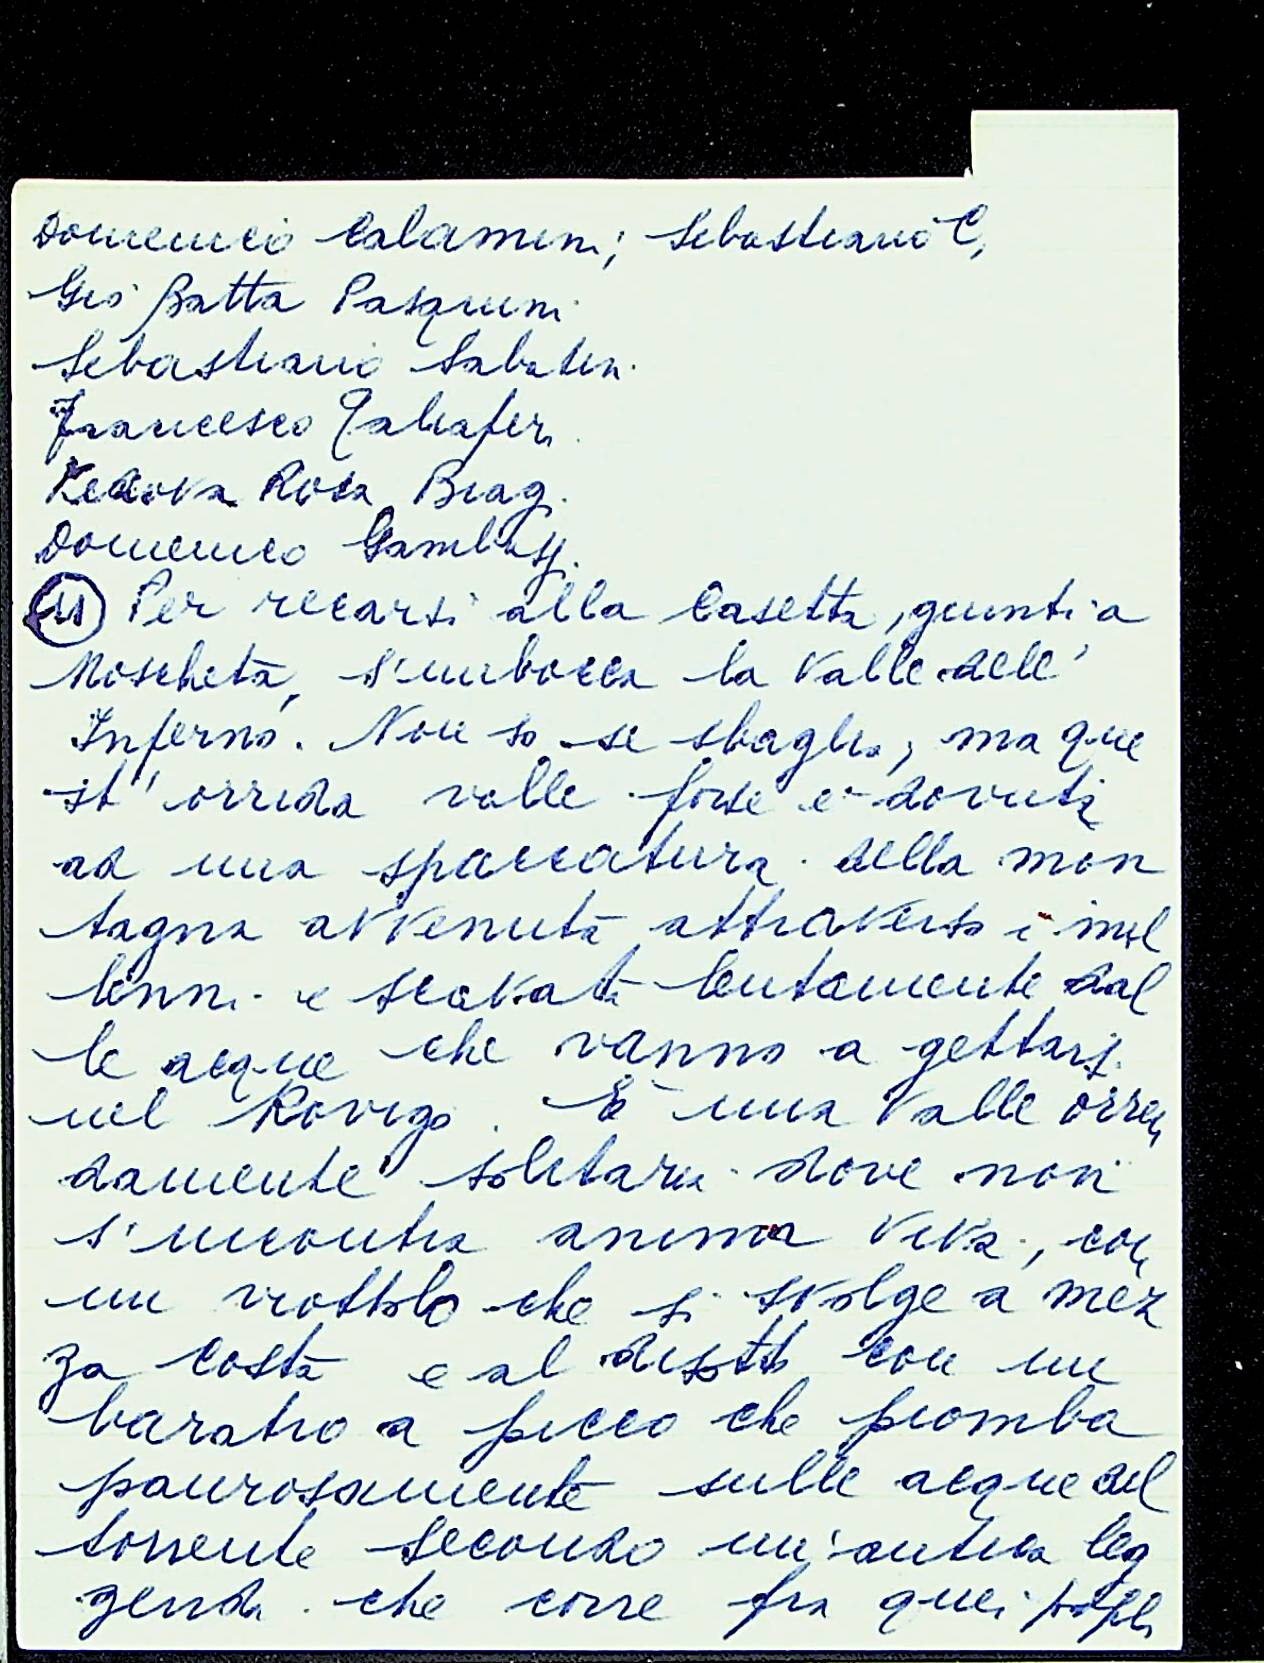 Domenico Calamini; Sebastiano C,
Gio Batta Pasquini
Sebastiano Sabatini
Francesco Tagliaferri
Vedova Rosa Biagi
Domenico Gambassi
11 Per recarsi alla Casetta, giunti a
Moscheta, s'imbocca la Valle dell'
Inferno. Non so se sbaglio, ma que
st'orrida valle forse è dovuta
ad una spaccatura della mon
tagna avvenuta attraverso i mil
lenni e scavata lentamente dal
le acque che vanno a gettarsi
nel Rovigo. È una valle orren
damente solitaria dove non
s'incontra anima viva, con
un viottolo che si svolge a mez
za costa e al disotto con un
baratro a picco che piomba
paurosamente sulle acque del
torrente secondo un'antica leg
genda che corre fra quei popoli